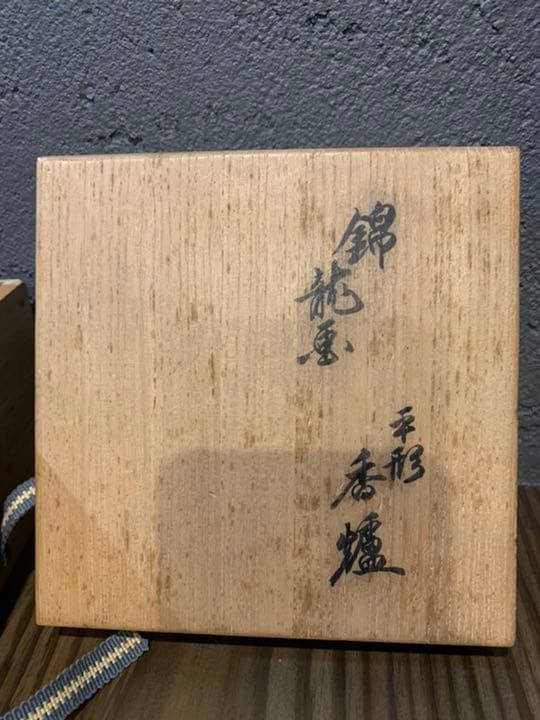 錦
龍画
平形
香爐